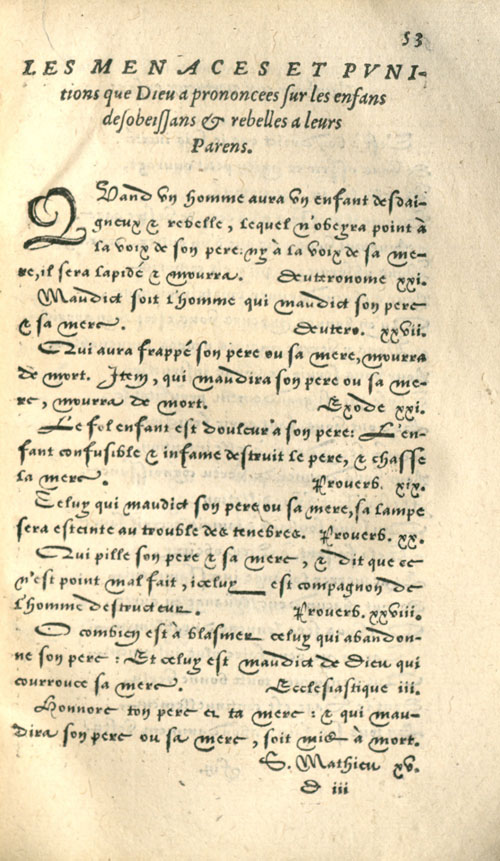 53
LES MENACES ET PVNI-
tions que Dieu a prononcees sur les enfans
desobeissans & rebelles a leurs
Parens.
QVand vn homme aura vn enfant desdai-
gneux & rebelle, lequel n'obeyra point à
la voix de son pere: ny à la voix de sa me-
re, il sera lapidé & mourra. Deuteronome xxi.
Maudict soit l'homme qui maudict son pere
& sa mere. Deutero. xxvii.
Qui aura frappé son pere ou sa mere, mourra
de mort. Item, qui maudira son pere ou sa me-
re, mourra de mort. Exode xxi.
Le fol enfant est douleur à son pere: L'en-
fant confusible & infame destruit le pere, & chasse
la mere. Proverb. xix.
Celuy qui maudict son pere ou sa mere, sa lampe
sera esteinte au trouble des tenebres. Proverb. xx.
Qui pille son pere & sa mere, & dit que ce
n'est point mal fait, iceluy est compagnon de
l'homme destructeur. Proverb. xxviii.
O combien est à blasmer celuy qui abandon-
ne son pere: Et celuy est maudict de Dieu qui
courrouce sa mere. Ecclesiastique iii.
Honnore ton pere et ta mere: & qui mau-
dira son pere ou sa mere, soit mis à mort.
S. Mathieu xv.
D iii